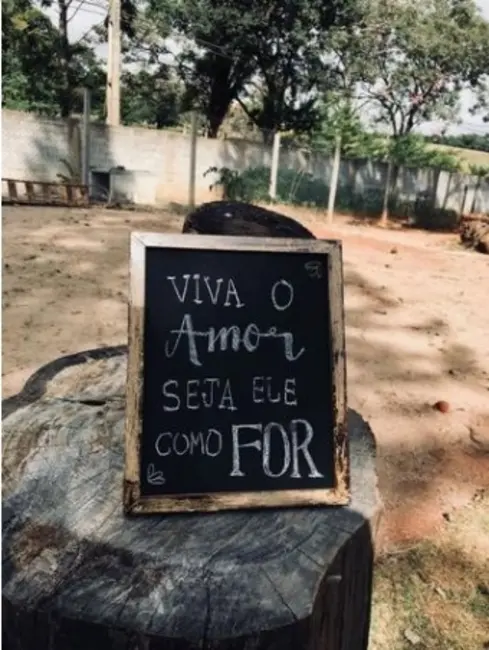 VIVA O
Amor
SEJA ELE
COMO FOR